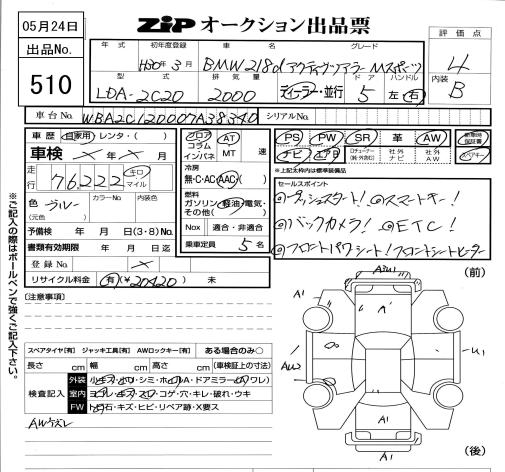 05月24日
ZIP オークション出品票
出品No.
510
年式 初年度登録 車名 グレード
H30年3月 BMW218d アクティブツアラー Mスポーツ
型式 排気量 ドア ハンドル
LDA-2C20 2000 ディーラー・並行 5 左・右
評価点
4
内装
B
車台No. WBA2C120007A38340 シリアルNo.
車歴 自家用・レンタ・( )
車検 × 年 × 月
走行 76,222 キロ マイル
色 ブルー カラーNo. 内装色
(元色 )
予備検 年 月 日(3・8)No.
書類有効期限 年 月 日迄
登録No. ×
リサイクル料金 有(¥20420) 未
フロア コラム インパネ AT MT 速
冷房
無・C・AC・AAC
燃料
ガソリン・軽油・電気・その他( )
Nox 適合・非適合
乗車定員 5 名
PS PW SR 革 AW
ナビ エアB 社外ナビ 社外AW
新車時保証書
スペアキー
※上記太枠内は標準装備品
セールスポイント
◎プッシュスタート! ◎スマートキー!
◎バックカメラ! ◎ETC!
◎フロントパワーシート! フロントシートヒーター
[注意事項]
※ご記入の際はボールペンで強くご記入下さい。
スペアタイヤ[有] ジャッキ工具[有] AWロックキー[有] ある場合のみ○
長さ cm 幅 cm 高さ cm (車検証上の寸法)
検査記入
外装
室内
FW トビ石・キズ・ヒビ・リペア跡・X要ス
AWキズ
(前)
A1
A1
U1
A1
(後)